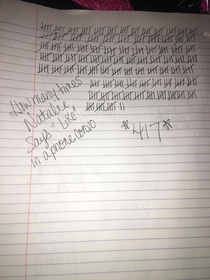 How many times
Natalie
Says "Like"
in a phone convo
*417*